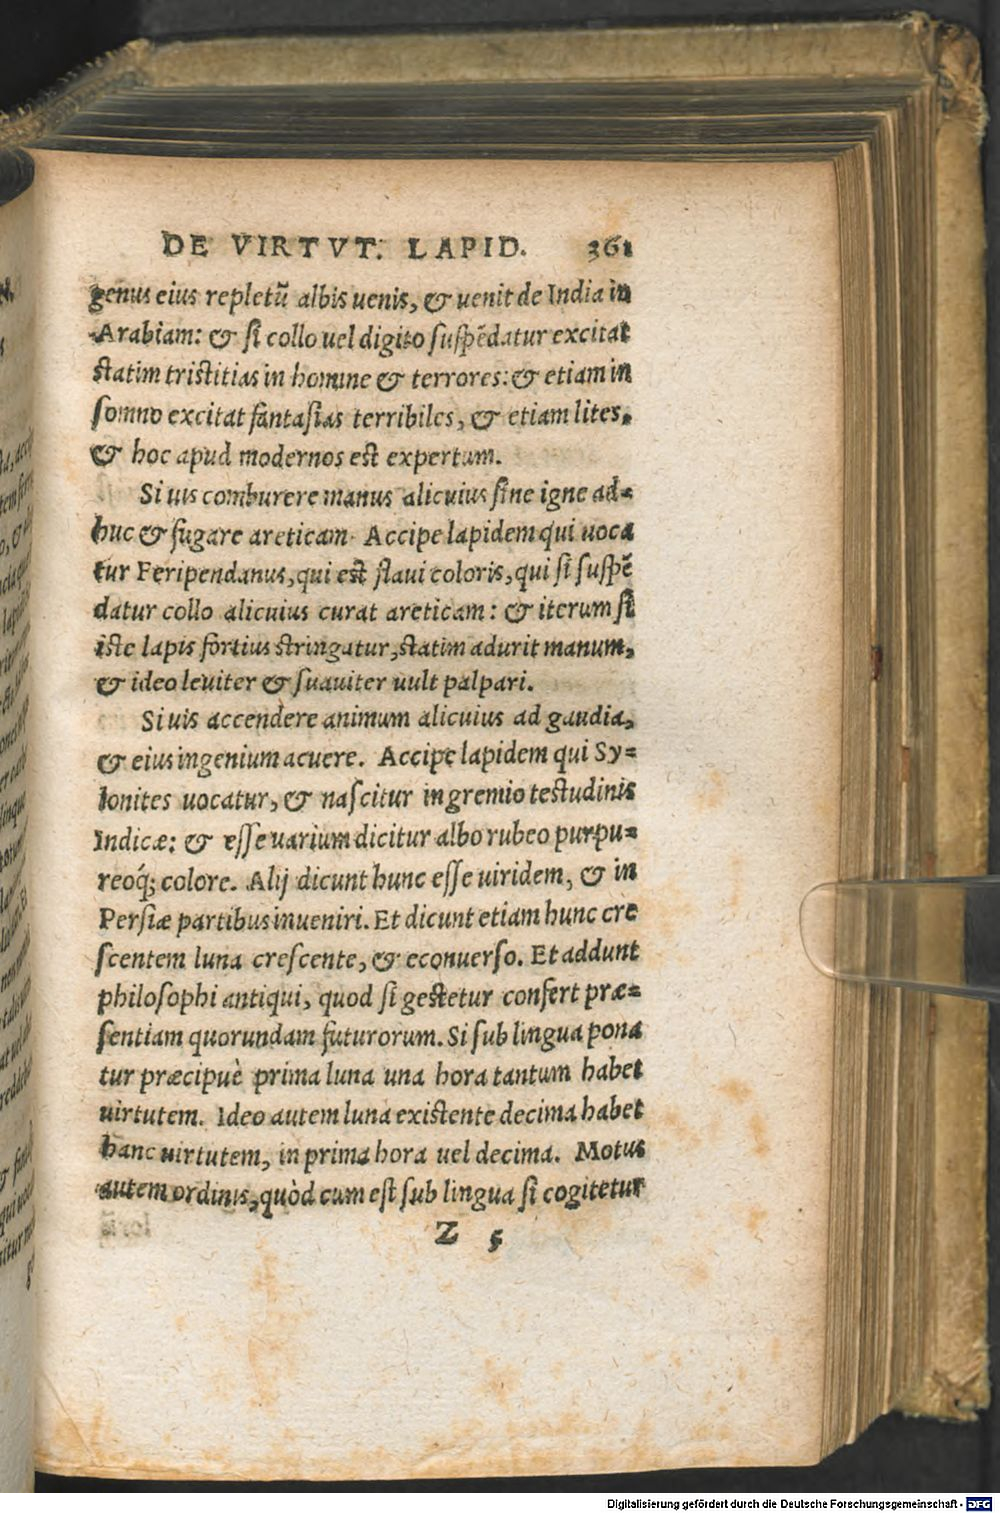 DE VIRTVT. LAPID. 361
genus eius repletū albis uenis, & uenit de India in
Arabiam: & si collo uel digito suspēdatur excitat
statim tristitias in homine & terrores: & etiam in
somno excitat fantasias terribiles, & etiam lites,
& hoc apud modernos est expertum.
Si uis comburere manus alicuius sine igne ad=
huc & fugare areticam. Accipe lapidem qui uoca
tur Feripendanus, qui est flaui coloris, qui si suspē
datur collo alicuius curat areticam: & iterum si
iste lapis fortius stringatur, statim adurit manum,
& ideo leuiter & suauiter uult palpari.
Si uis accendere animum alicuius ad gaudia,
& eius ingenium acuere. Accipe lapidem qui Sy=
lonites uocatur, & nascitur in gremio testudinis
Indicæ: & esse uarium dicitur albo rubeo purpu=
reoq́; colore. Alij dicunt hunc esse uiridem, & in
Persiæ partibus inueniri. Et dicunt etiam hunc cre
scentem luna crescente, & econuerso. Et addunt
philosophi antiqui, quod si gestetur confert præ=
sentiam quorundam futurorum. Si sub lingua pona
tur præcipuè prima luna una hora tantum habet
uirtutem. Ideo autem luna existente decima habet
hanc uirtutem, in prima hora uel decima. Motus
autem ordinis, quòd cum est sub lingua si cogitetur
Z 5
Digitalisierung gefördert durch die Deutsche Forschungsgemeinschaft - DFG